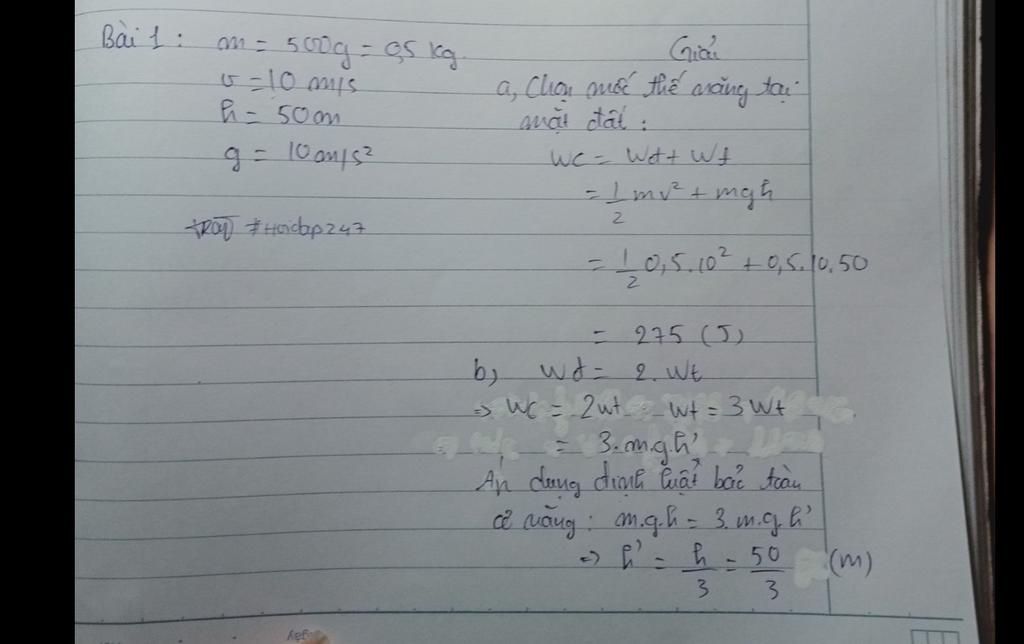 Bài 1: m = 500g = 0,5 kg
v = 10 m/s
h = 50m
g = 10 m/s²
#Hoidap247
Giải
a, Chọn mốc thế năng tại
mặt đất:
Wc = Wđ + Wt
= 1/2 mv² + mgh
= 1/2 0,5.10² + 0,5.10.50
= 275 (J)
b, Wđ = 2.Wt
=> Wc = 2Wt Wt = 3Wt
= 3.m.g.h'
Áp dụng định luật bảo toàn
cơ năng: m.g.h = 3.m.g.h'
=> h' = h/3 = 50/3 (m)